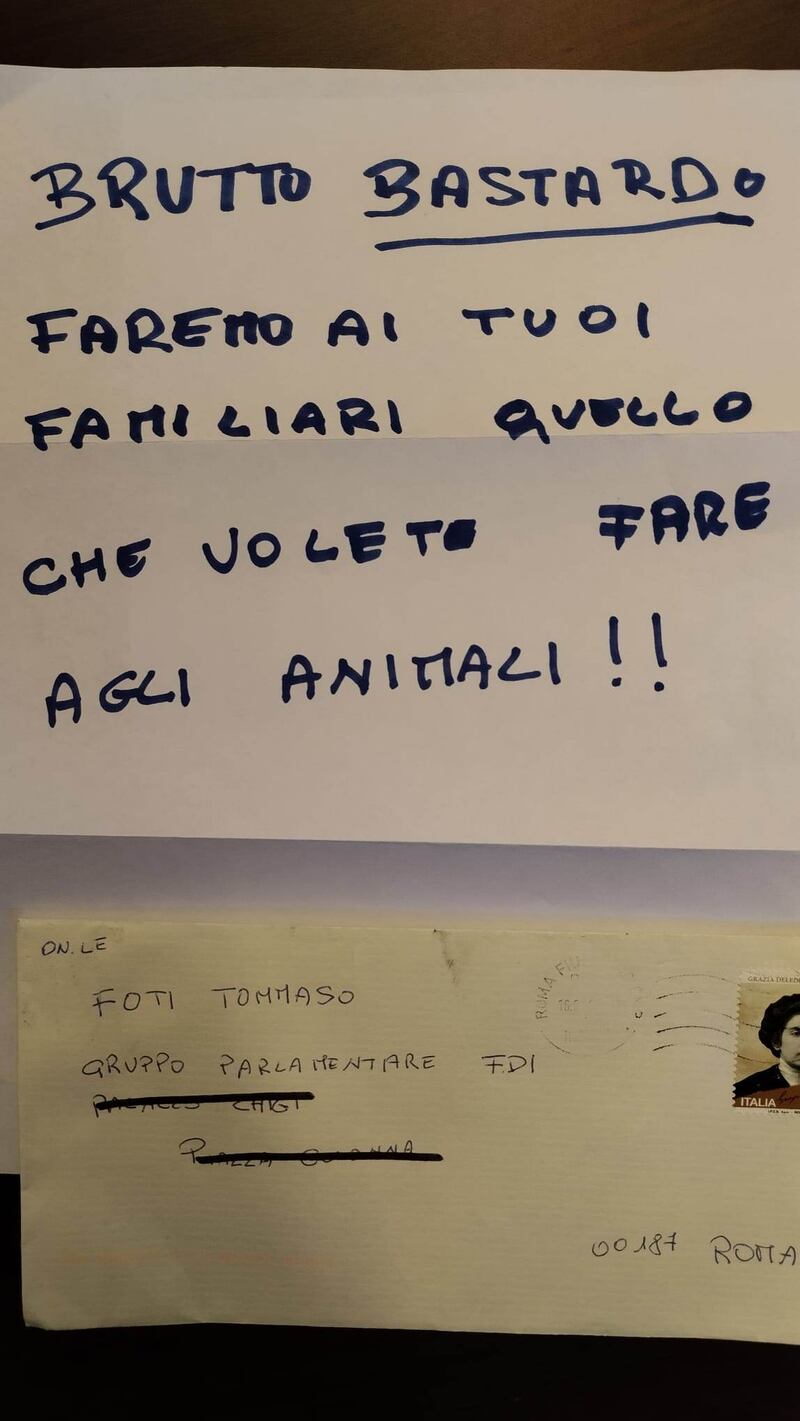 BRUTTO BASTARDO
FAREMO AI TUOI
FAMILIARI QUELLO
CHE VOLETE FARE
AGLI ANIMALI!!
ON.LE
FOTI TOMMASO
GRUPPO PARLAMENTARE FDI
PALAZZO CHIGI
PIAZZA COLONNA
00187 ROMA
ROMA
GRAZIA DELED
ITALIA